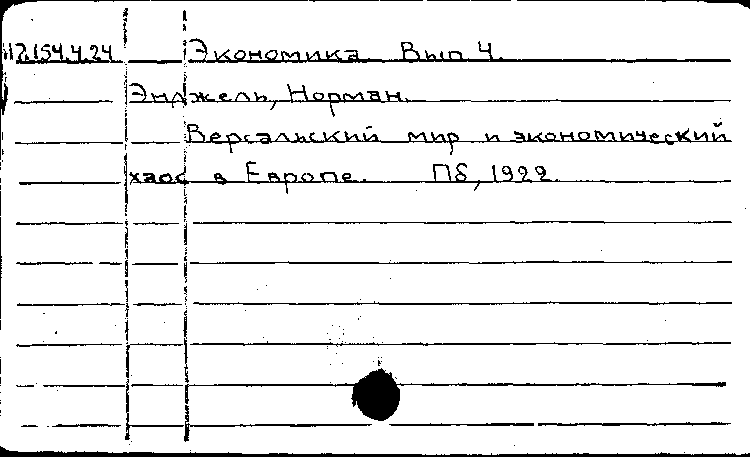 112.154.4.24 Экономика Вып 4.
Энджель, Норман.
Версальский мир и экономический
хаос в Европе. Пб, 1922.